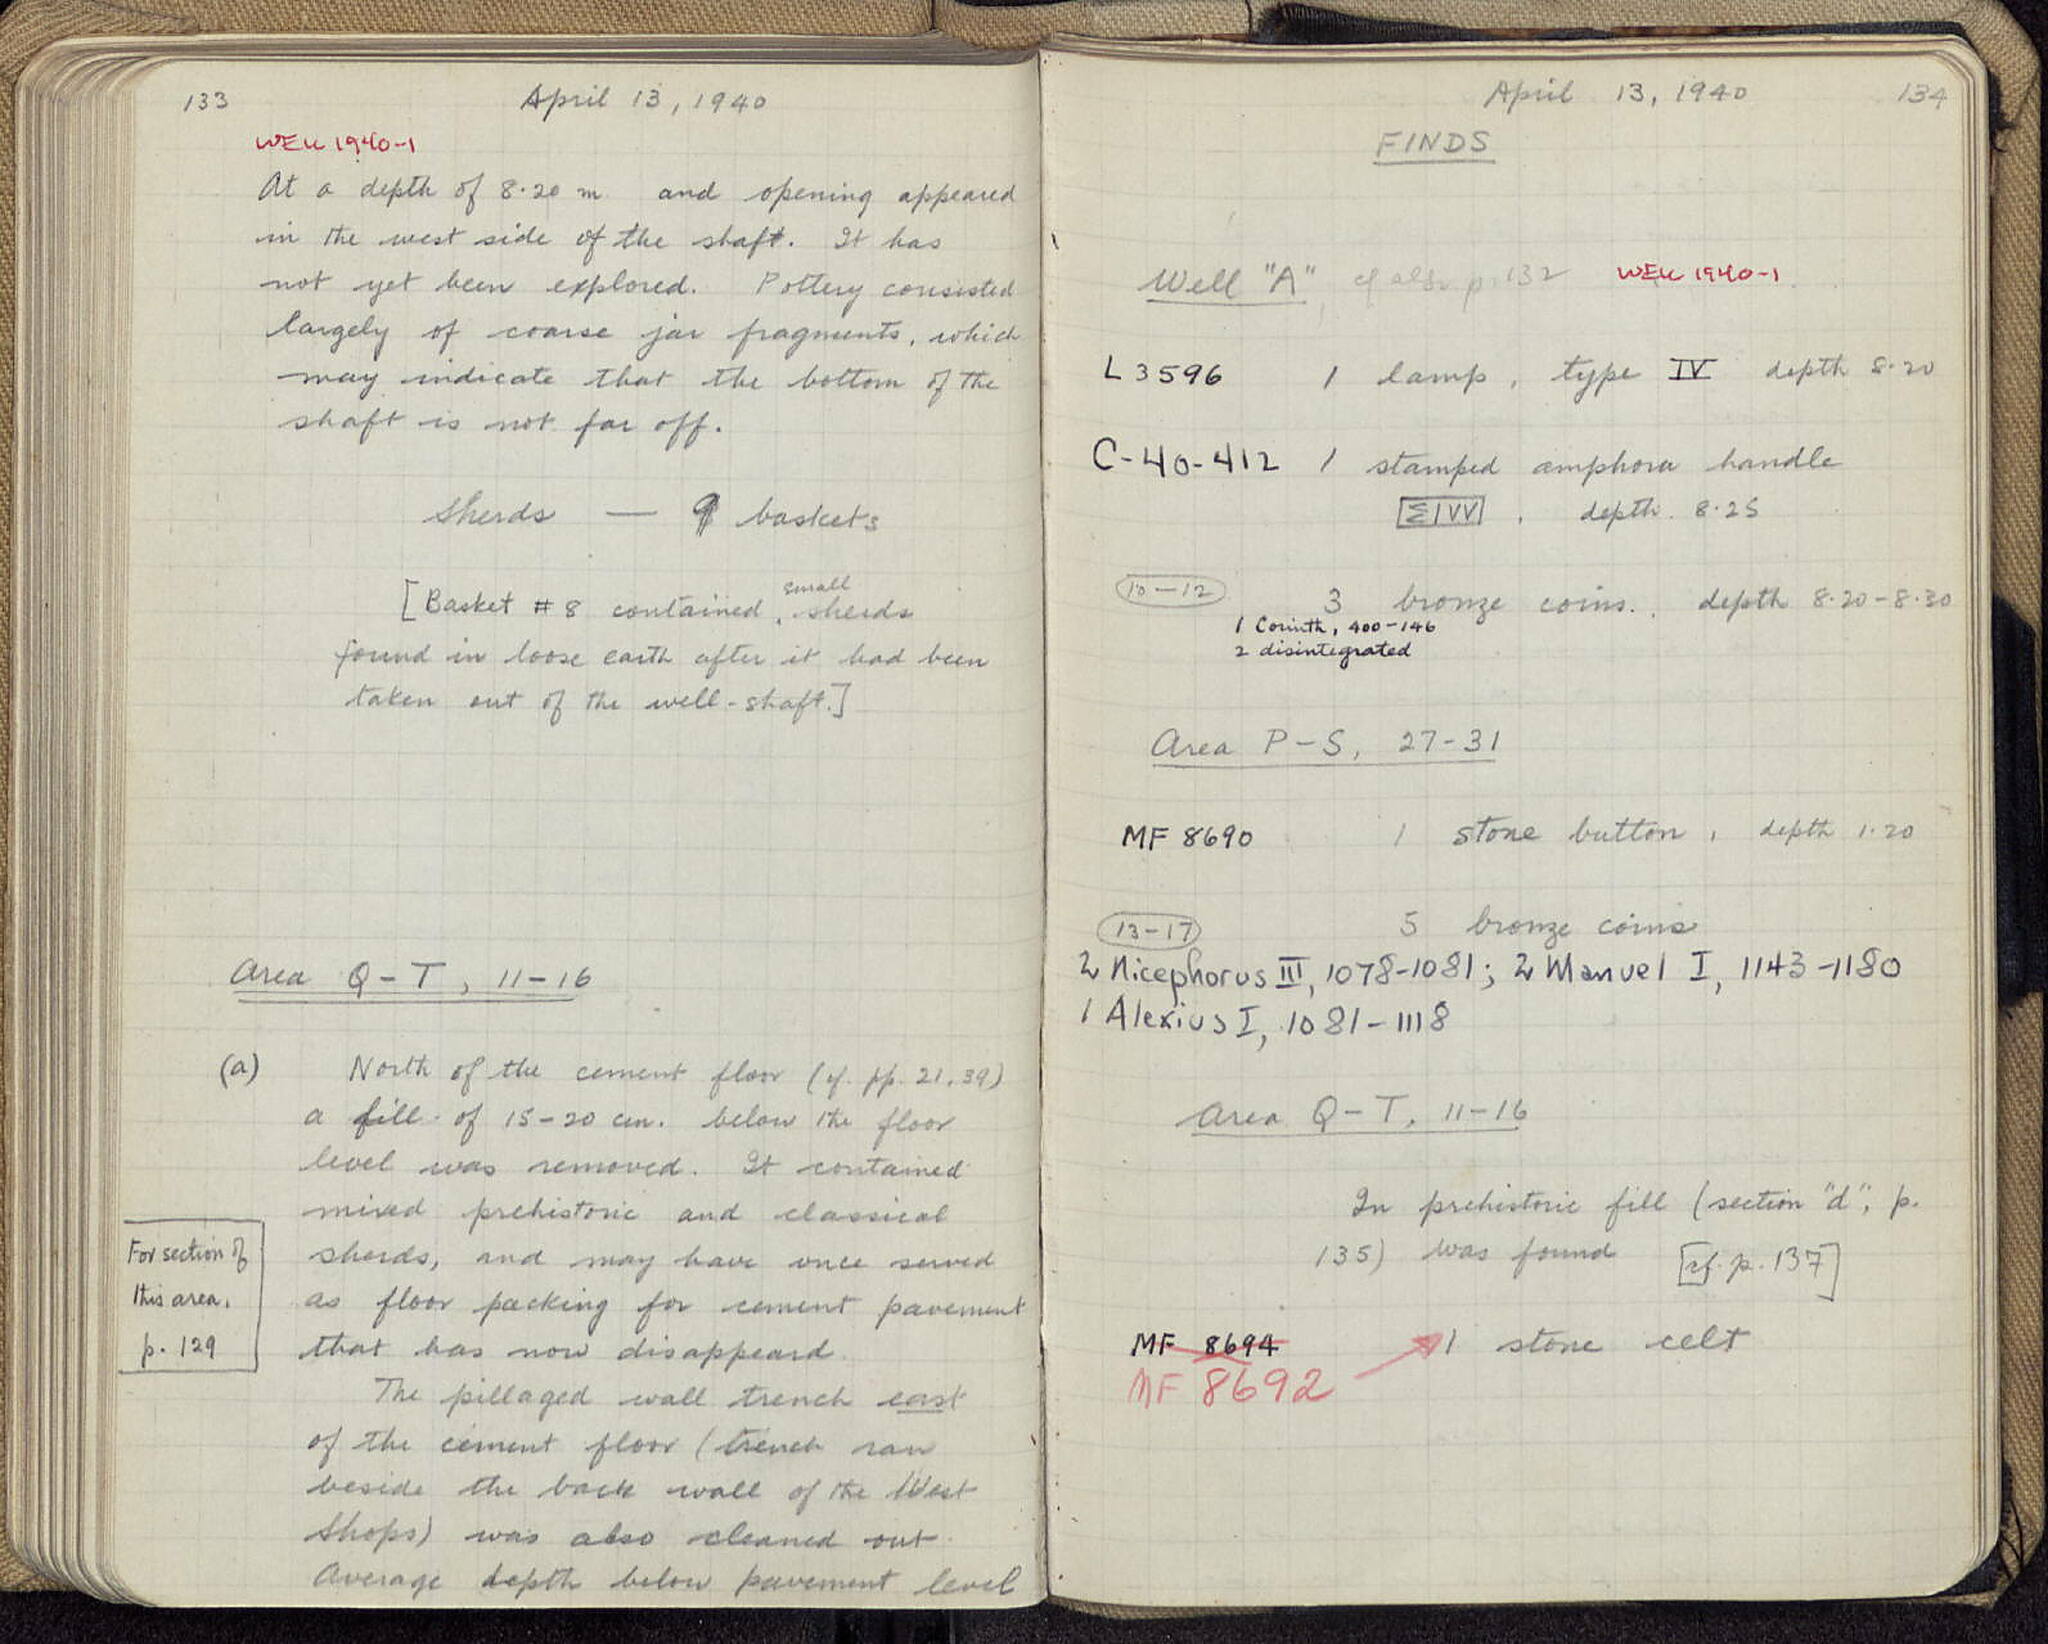 133
April 13, 1940
WELL 1940-1
At a depth of 8.20 m. and opening appeared
in the west side of the shaft. It has
not yet been explored. Pottery consisted
largely of coarse jar fragments, which
may indicate that the bottom of the
shaft is not far off.
Sherds — 9 baskets
small
[Basket # 8 contained, sherds
found in loose earth after it had been
taken out of the well-shaft.]
Area Q-T, 11-16
(a) North of the cement floor (cf. pp. 21, 39)
a fill of 15-20 cm. below the floor
level was removed. It contained
mixed prehistoric and classical
sherds, and may have once served
as floor packing for cement pavement
that has now disappeard.
For section of
this area,
p. 129
The pillaged wall trench east
of the cement floor (trench ran
beside the back wall of the West
Shops) was also cleaned out.
Average depth below pavement level
April 13, 1940
134
FINDS
Well "A", cf also p. 132 WELL 1940-1
L 3596 1 lamp, type IV depth 8.20
C-40-412 1 stamped amphora handle
ΣΙVV, depth 8.25
10-12 3 bronze coins, depth 8.20-8.30
1 Corinth, 400-146
2 disintegrated
Area P-S, 27-31
MF 8690 1 stone button, depth 1.20
13-17 5 bronze coins
2 Nicephorus III, 1078-1081; 2 Manuel I, 1143-1180
1 Alexius I, 1081-1118
Area Q-T, 11-16
In prehistoric fill (section "d", p.
135) was found [cf. p. 137]
MF 8694 1 stone celt
MF 8692